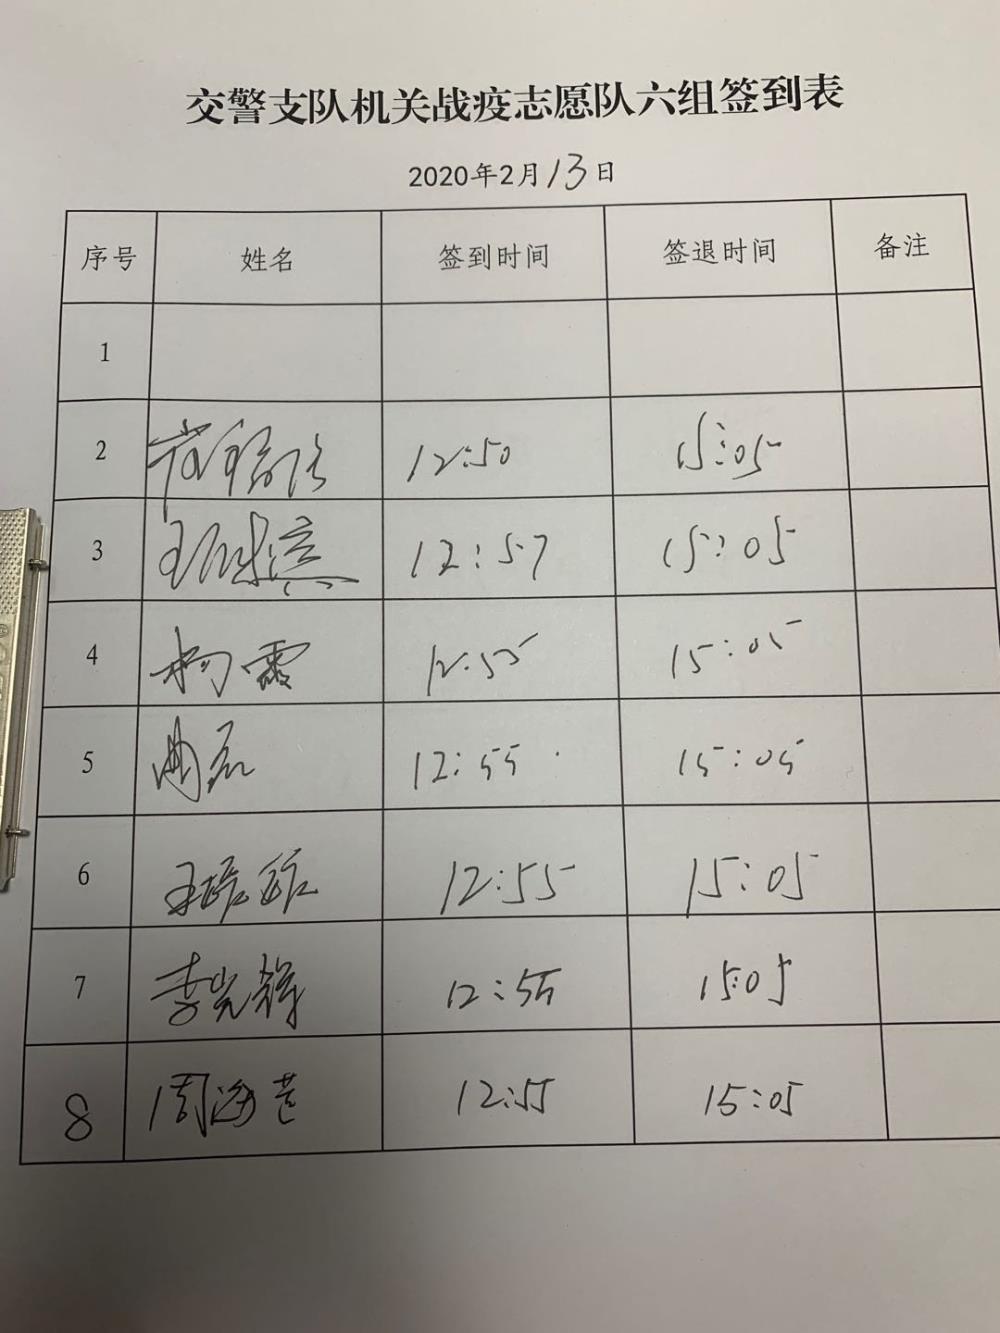 交警支队机关战疫志愿队六组签到表
2020年2月13日
序号 姓名 签到时间 签退时间 备注
1
2 12:50 15:05
3 12:57 15:05
4 杨霞 12:55 15:05
5 曲磊 12:55 15:05
6 12:55 15:05
7 李光辉 12:55 15:05
8 周海芒 12:55 15:05